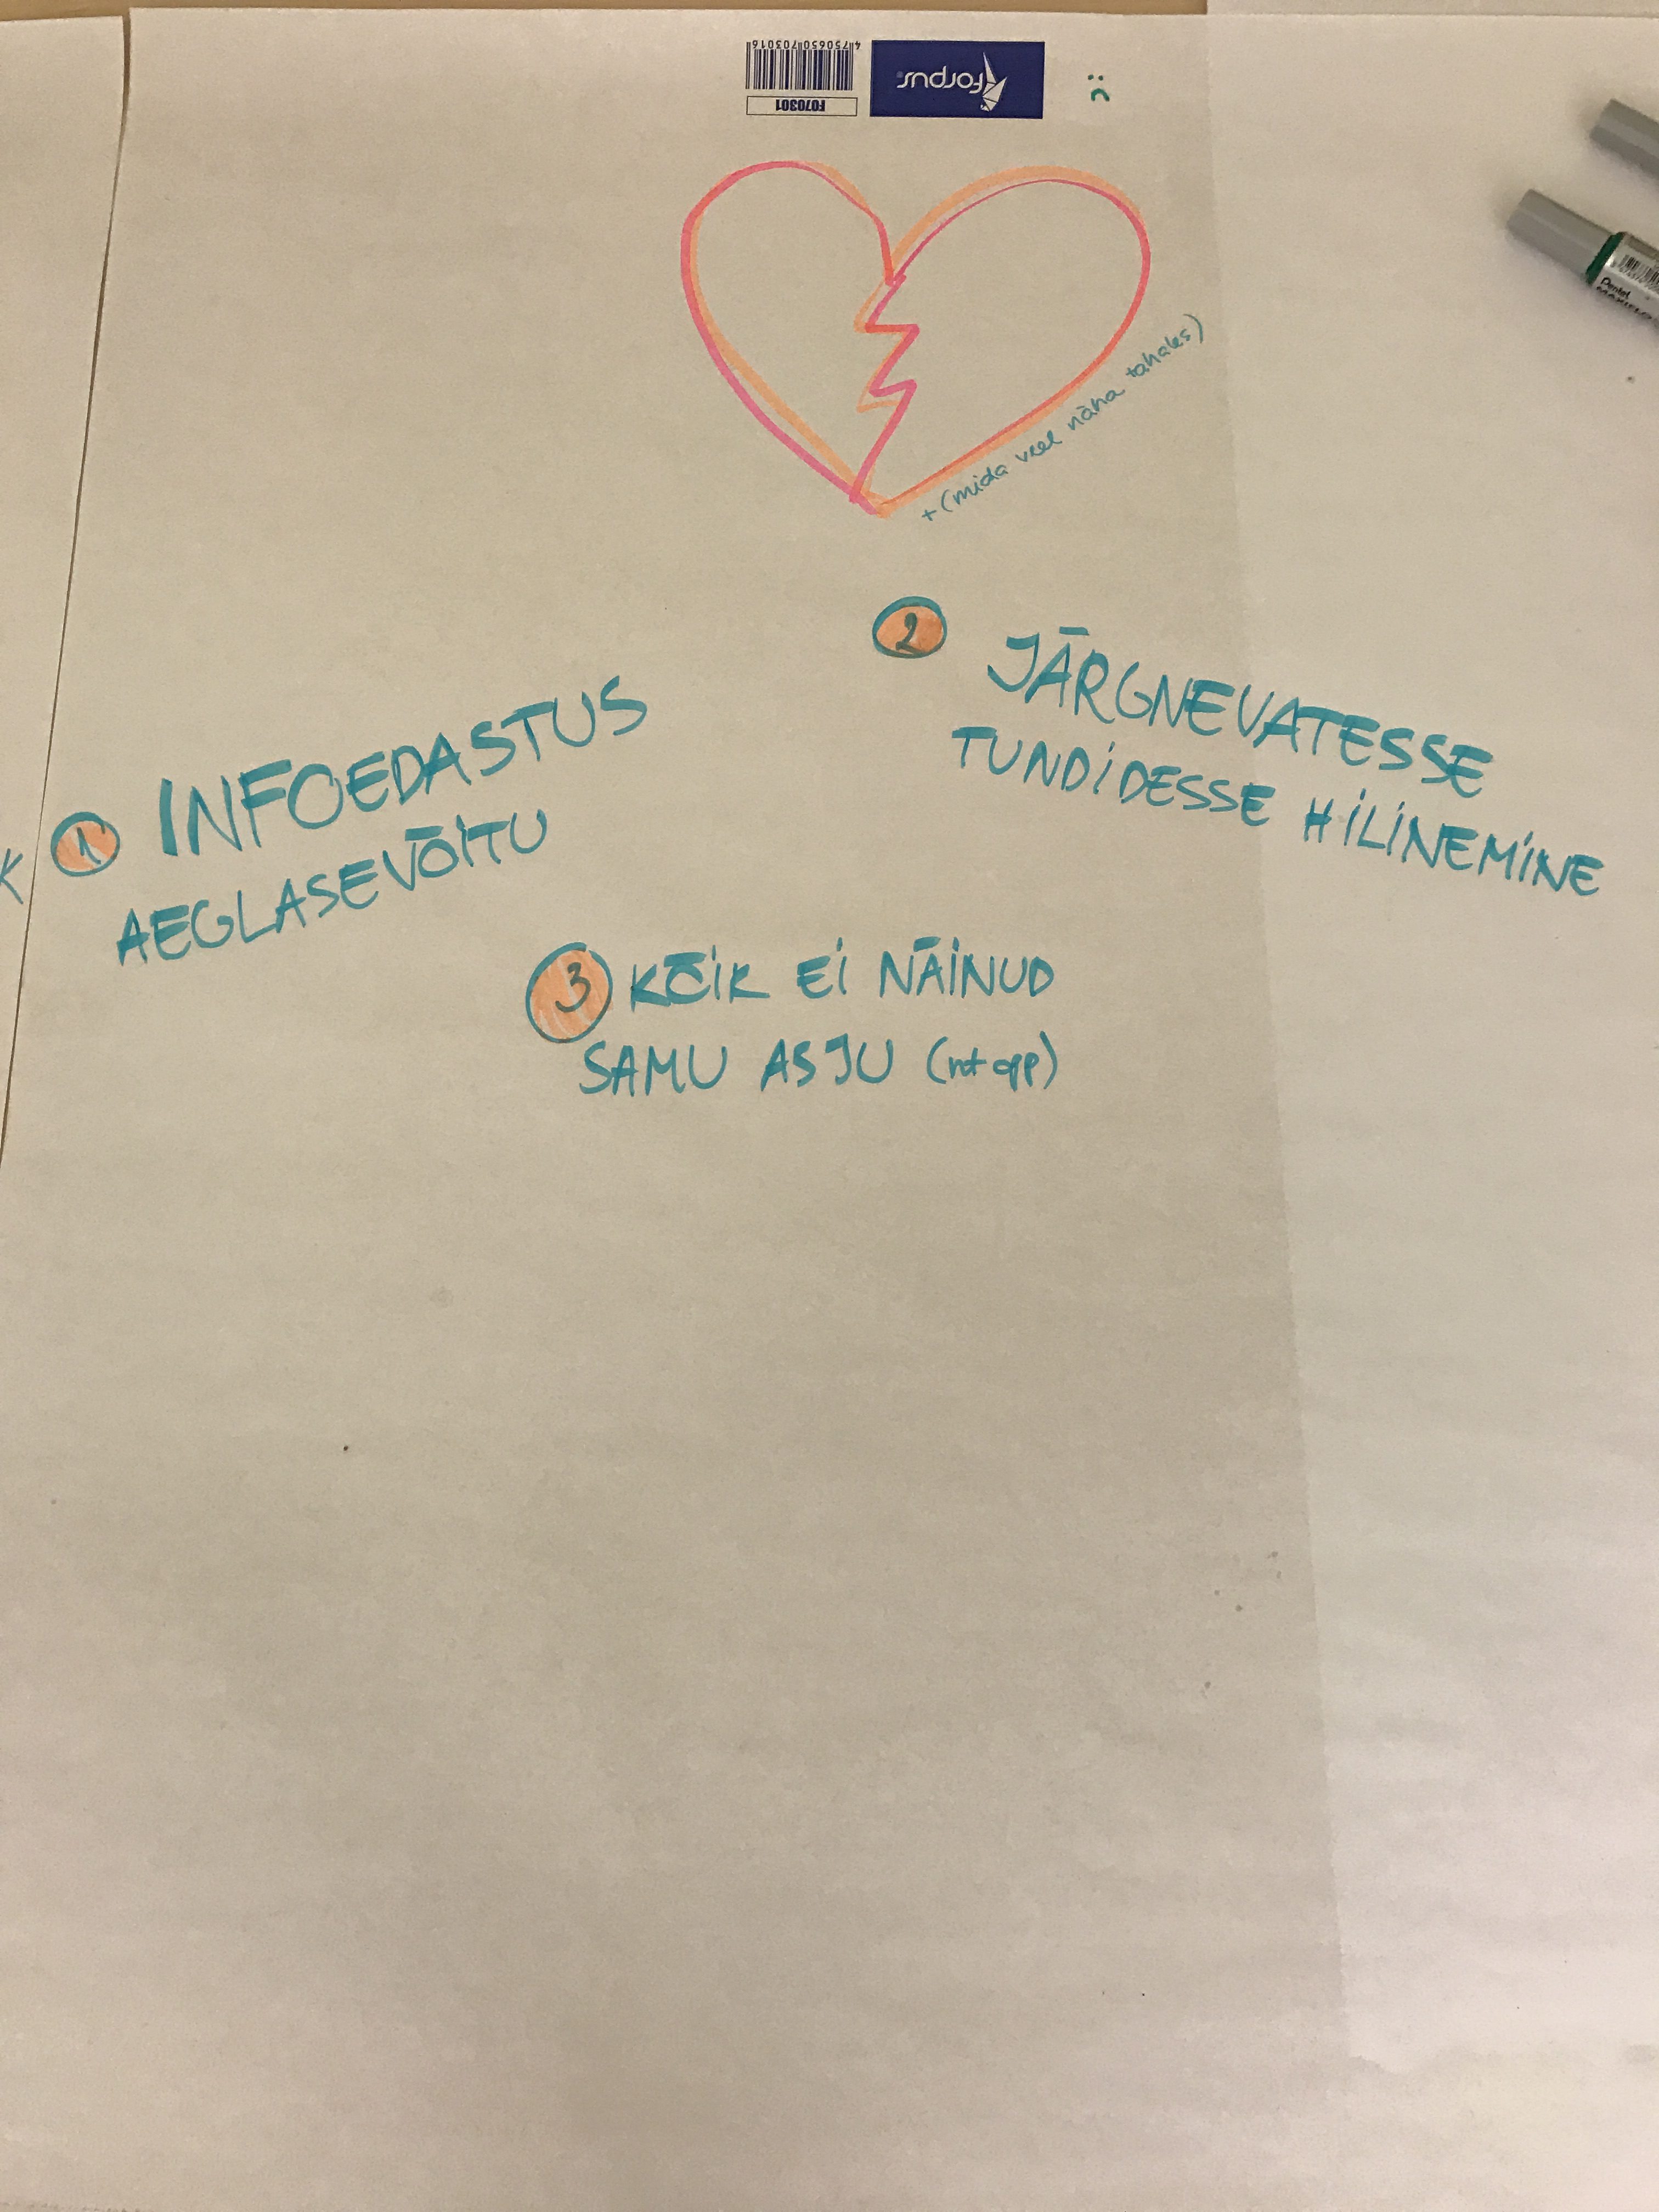 4750650703016
F070301
forpus
:c
+ (mida veel näha tahaks)
1 INFOEDASTUS
AEGLASEVÕITU
2 JÄRGNEVATESSE
TUNDIDESSE HILINEMINE
3 KÕIK EI NÄINUD
SAMU ASJU (nt app)
K
Pentel